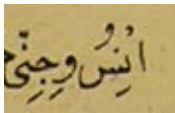 انِسُ وجِنِّی